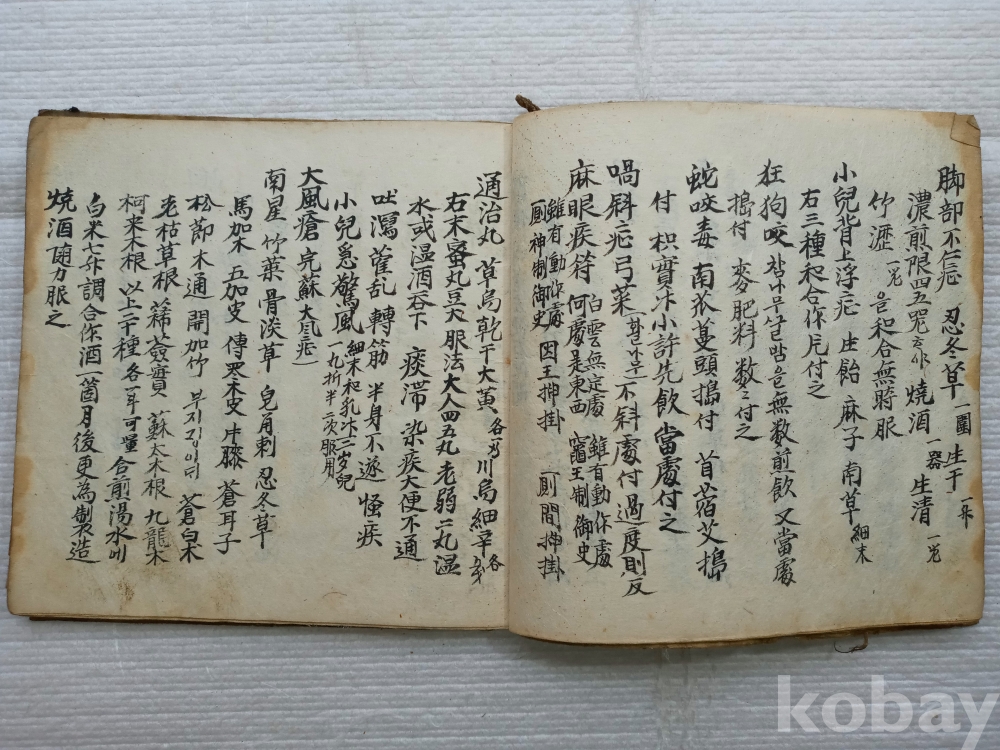 脚部不仁症 忍冬草一圍 生干一升
濃煎限四五咒 燒酒一器 生清一咒
竹瀝一咒 을和合無時服
小兒背上浮症 生飴 麻子 南草細末
右三種和合作片付之
狂狗咬 참나무 을無数煎飲 又當處
搗付 麥肥料 数々付之
蛇咬毒 南苽蔓頭搗付 首蓿艾搗
付 枳實 小許先飲 當處付之
喎斜症 弓菜 不斜處付 過度則反
麻眼疾符 伯雲無定處 雖有動作處
何處是東西 竈王制御史
雖有動作處 因王押掛 厠間押掛
厠神制御史
通治丸 草烏 乾干 大黃 各 川烏 細辛 各
右末蜜丸豆大 服法大人四五丸 老弱二丸 温
水或温酒吞下 痰滯 染疾大便不通
吐瀉藿乱轉筋 半身不遂 怪疾
小兒急驚風 細末和乳汁 二三岁兒
一九折半 二次服用
大風瘡 完蘇
南星 竹葉 骨淡草 皂角刺 忍冬草
馬加木 五加皮 傳木皮 片膝 蒼耳子
松節木通 開加竹 부지깅이디 蒼白木
老枯草根 蒢薟實 蘇太木根 九龍木
柯来木根 以上二十種 各耳可量 合煎湯水에
白米七升調合作酒 一箇月後更為製造
燒酒 随力服之
kobay